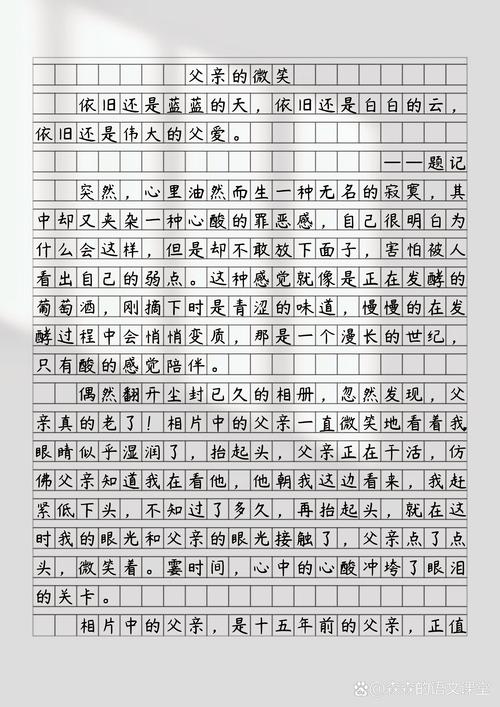 父亲的微笑
依旧还是蓝蓝的天，依旧还是白白的云，
依旧还是伟大的父爱。
——题记
突然，心里油然而生一种无名的寂寞，其
中却又夹杂一种心酸的罪恶感，自己很明白为
什么会这样，但是却不敢放下面子，害怕被人
看出自己的弱点。这种感觉就像是正在发酵的
葡萄酒，刚摘下时是青涩的味道，慢慢的在发
酵过程中会悄悄变质，那是一个漫长的世纪，
只有酸的感觉陪伴。
偶然翻开尘封已久的相册，忽然发现，父
亲真的老了！相片中的父亲一直微笑地看着我，
眼睛似乎湿润了，抬起头，父亲正在干活，仿
佛父亲知道我在看他，他朝我这边看来，我赶
紧低下头，不知过了多久，再抬起头，就在这
时我的眼光和父亲的眼光接触了，父亲点了点
头，微笑着。霎时间，心中的心酸冲垮了眼泪
的关卡。
相片中的父亲，是十五年前的父亲，正值
Bai du @森森的语文课堂